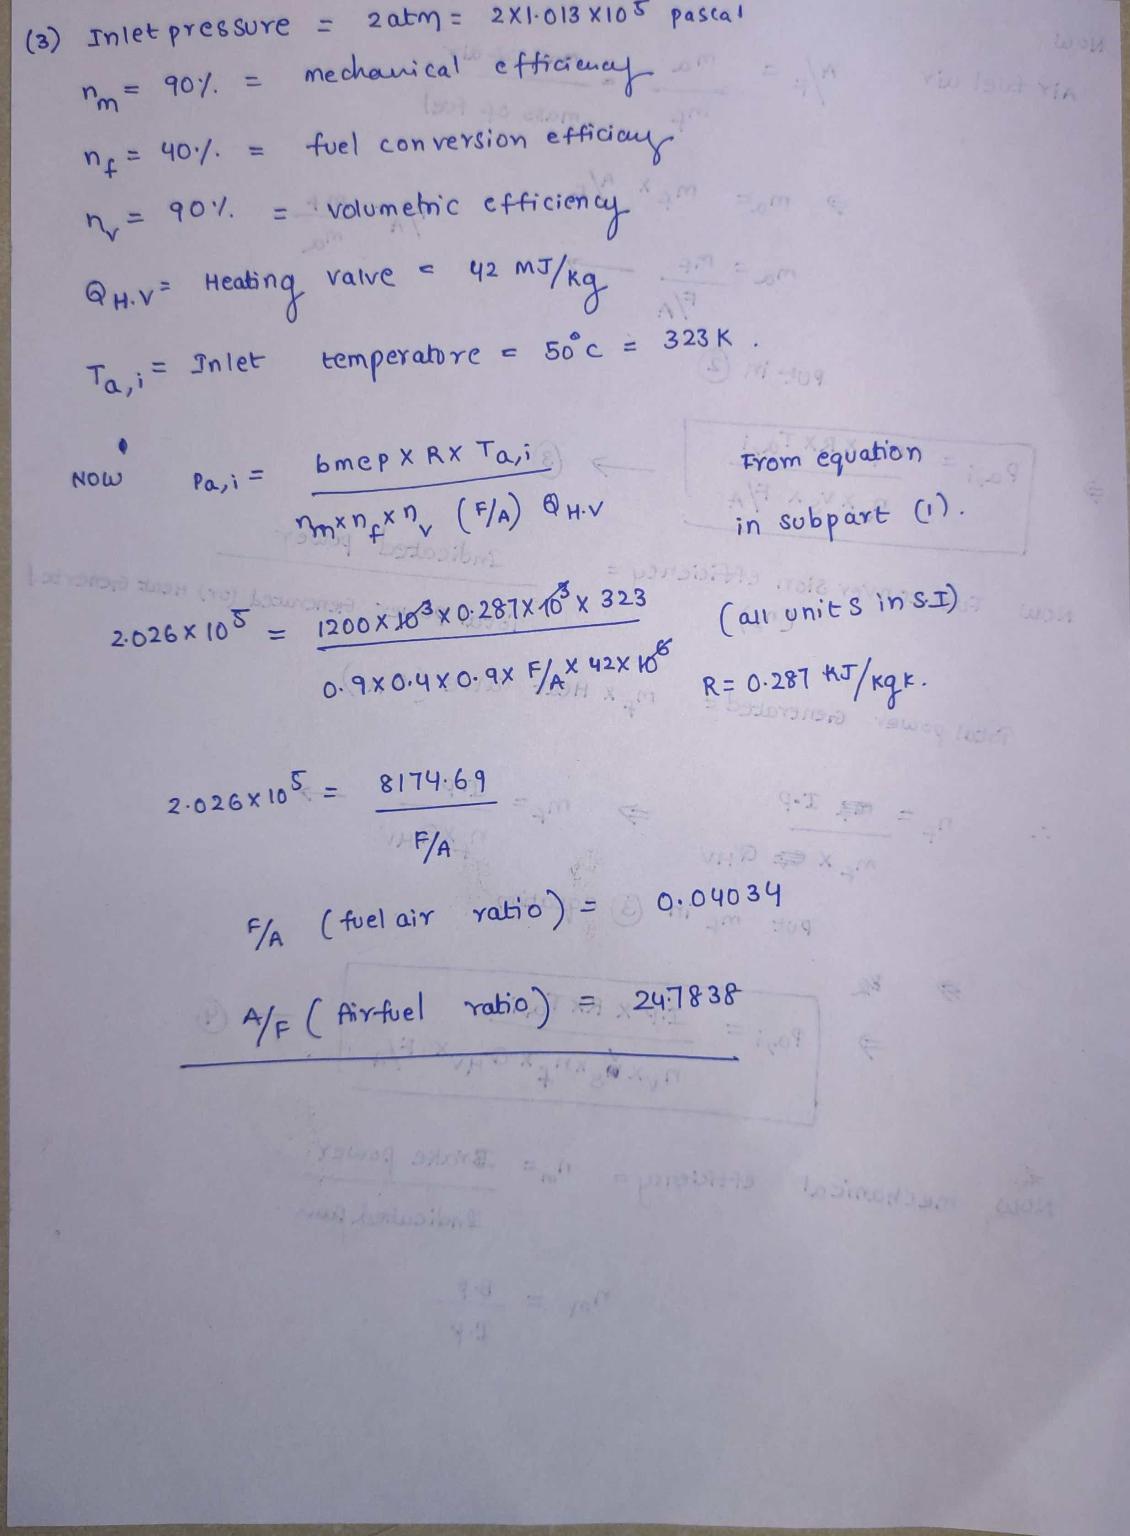 (3) Inlet pressure = 2 atm = 2X1.013 X10⁵ pascal
ηm = 90% = mechanical efficiency
ηf = 40% = fuel conversion efficiency
ηv = 90% = volumetric efficiency
QH.V = Heating valve = 42 MJ/kg
Ta,i = Inlet temperatore = 50°C = 323 K.
NOW Pa,i = bmep X R X Ta,i / ηm x ηf x ηv (F/A) QH.V From equation
in subpart (1).
2.026 X 10⁵ = 1200 X 10³ X 0.287 X 10³ X 323 / 0.9 X 0.4 X 0.9 X F/A X 42 X 10⁶ (all units in S.I)
R = 0.287 KJ/kgk.
2.026 X 10⁵ = 8174.69 / F/A
F/A (fuel air ratio) = 0.04034
A/F (Airfuel ratio) = 24.7838